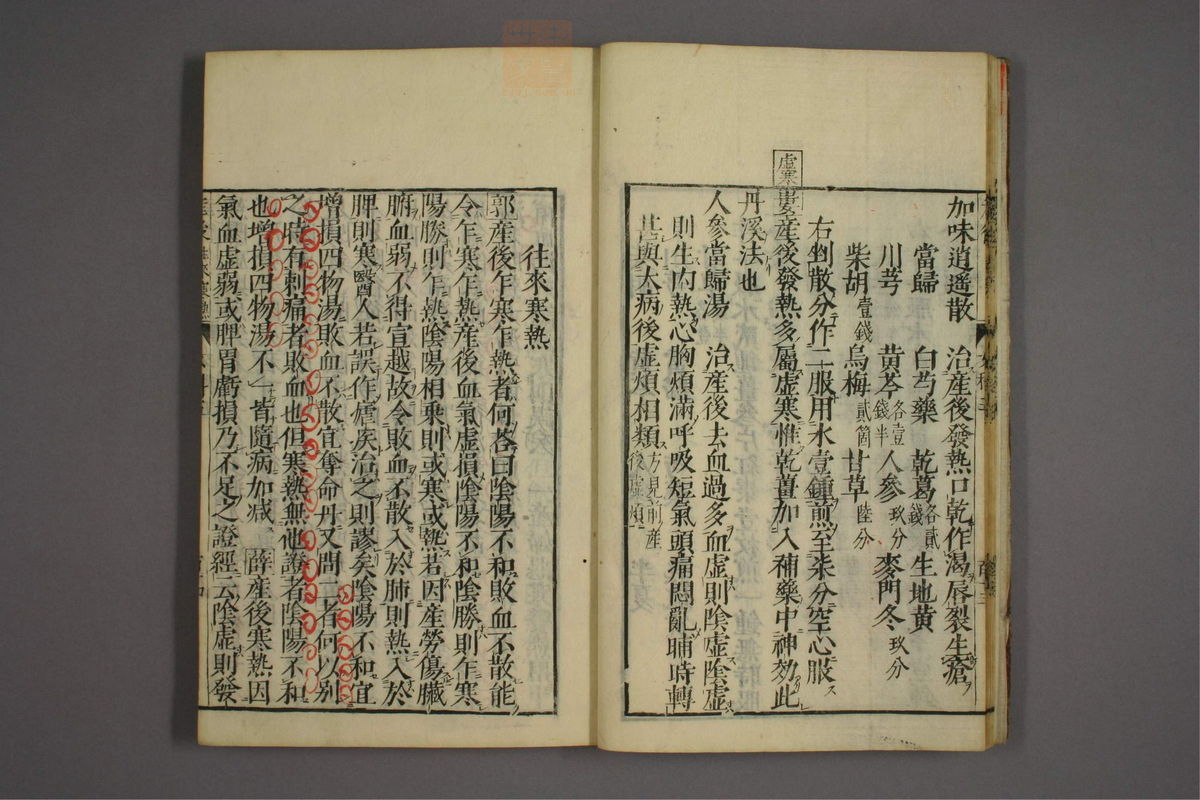 加味逍遥散　治產後發熱口乾作渴唇裂生瘡
當歸　白芍藥　乾葛各貳錢　生地黄
川芎　黄芩各壹錢半　人參玖分　麥門冬玖分
柴胡壹錢　烏梅貳箇　甘草陸分
右剉散分作二服用水壹鍾煎至柒分空心服
虛寒
產後發熱多屬虛寒惟乾薑加入補藥中神効此
丹溪法也
人參當歸湯　治產後去血過多血虛則陰虛陰虛
則生內熱心胸煩滿呼吸短氣頭痛悶亂晡時轉
甚與大病後虛煩相類方見前產後虛煩
往來寒熱
郭產後乍寒乍熱者何答曰陰陽不和敗血不散能
令乍寒乍熱產後血氣虛損陰陽不和陰勝則乍寒
陽勝則乍熱陰陽相乗則或寒或熱若因產勞傷臟
腑血弱不得宣越故令敗血不散入於肺則熱入於
脾則寒醫人若誤作瘧疾治之則謬矣陰陽不和宜
增損四物湯敗血不散宜奪命丹又問二者何以别
之時有刺痛者敗血也但寒熱無他證者陰陽不和
也增損四物湯不一皆隨病加减　薛產後寒熱因
氣血虛弱或脾胃虧損乃不足之證經云陰虛則發